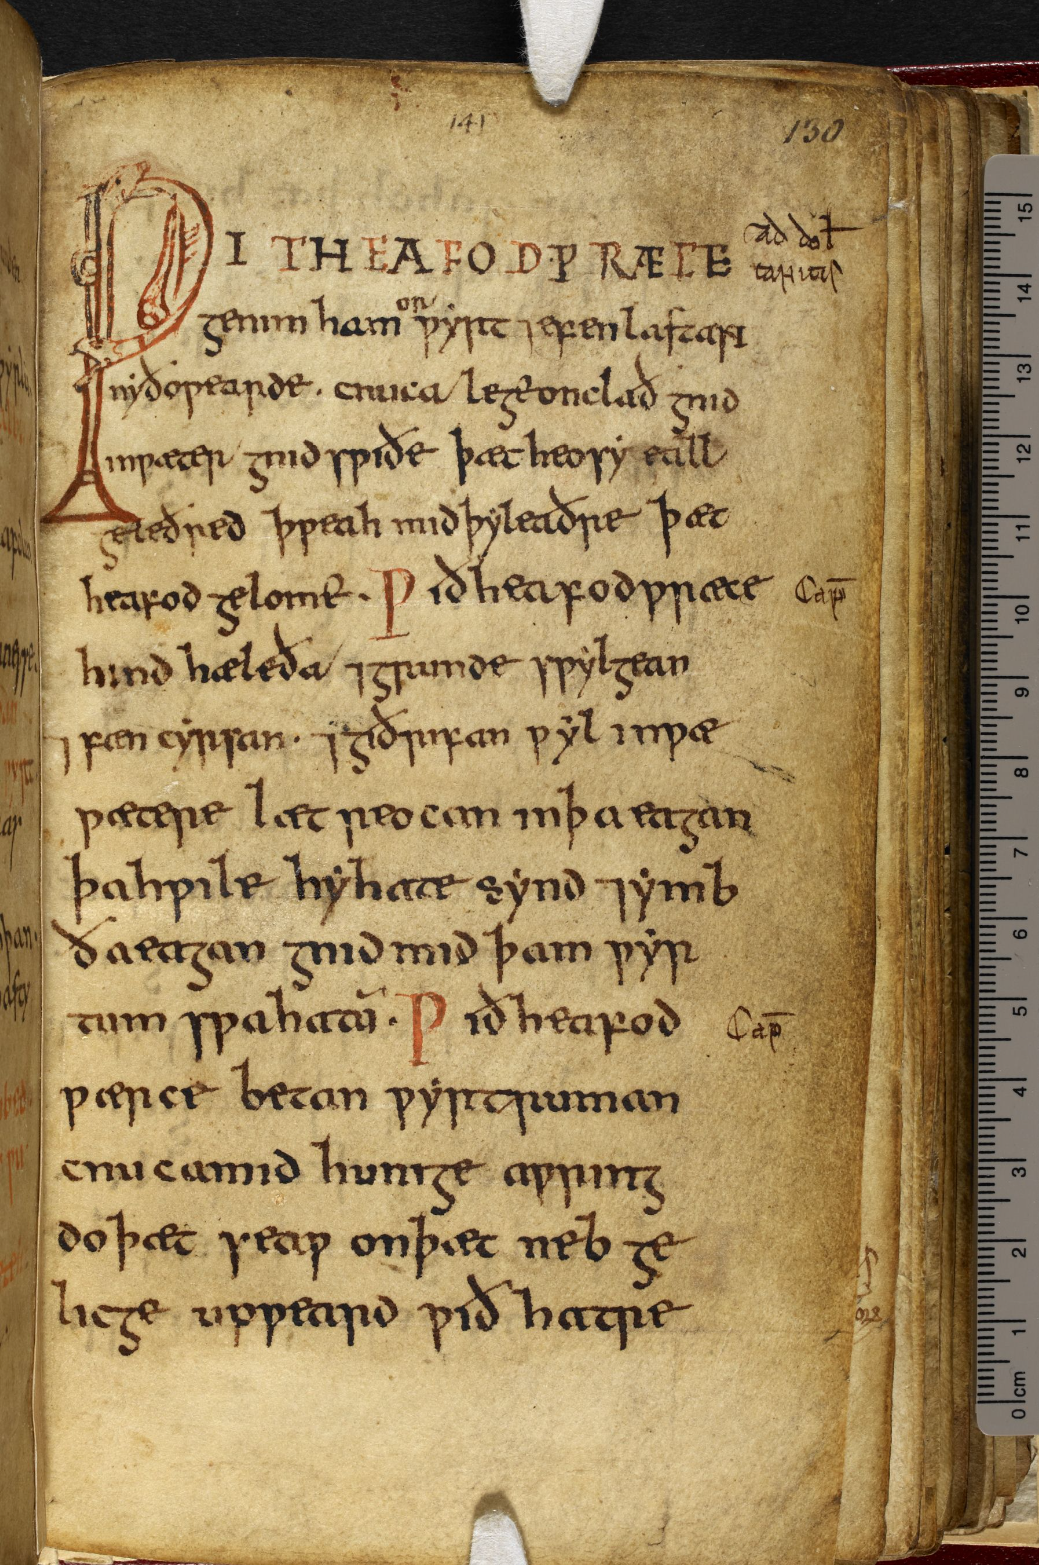 141
130
ǷIÐ HEAFODǷRÆCE
ad dol
capitis
genim hamon ƿyrt ⁊efen lastari
nyðoƿearde · cnuca lege on clað gnid
in ƿæter gnid sƿiðe þæt heo sy eall
geleðred þƿeah mid þy leaðre þæt
heafod gelome · Ƿið heafodƿræce
Cap̄
hind hæleða ⁊grunde sƿylgean
⁊fæn cyrsan · ⁊giðrifan ƿyl in ƿæ
ƿætere læt reocan in þa eagan
þa hƿile hy hate synd ⁊ymb
ða eagan gnid mid þam ƿyr
tum sƿa hatū · Ƿið heafod
Cap̄
ƿærce betan ƿyrtruman
cnuca mid hunige aƿring
do þæt seaƿ on þæt neb ge
licge uppeard ƿið hatre